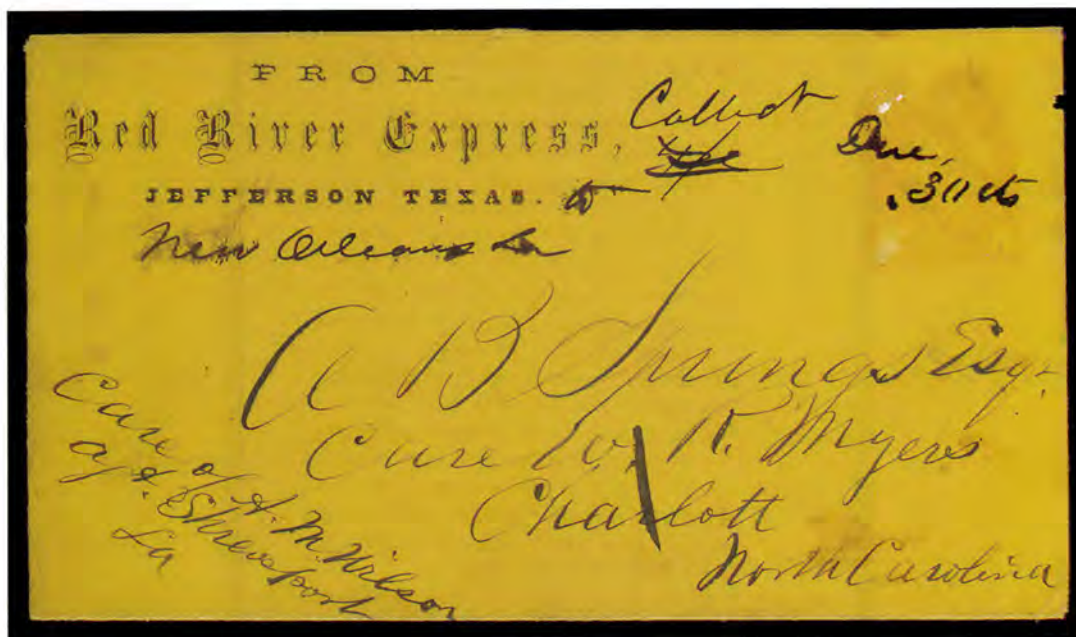 FROM
Red River Express,
JEFFERSON TEXAS.
Collect
Due,
.30 cts
New Orleans La
A B Springs Esq.
Care W. R. Myers
Charlott
North Carolina
Care of A. M. Wilson
Agt. Shreveport
La